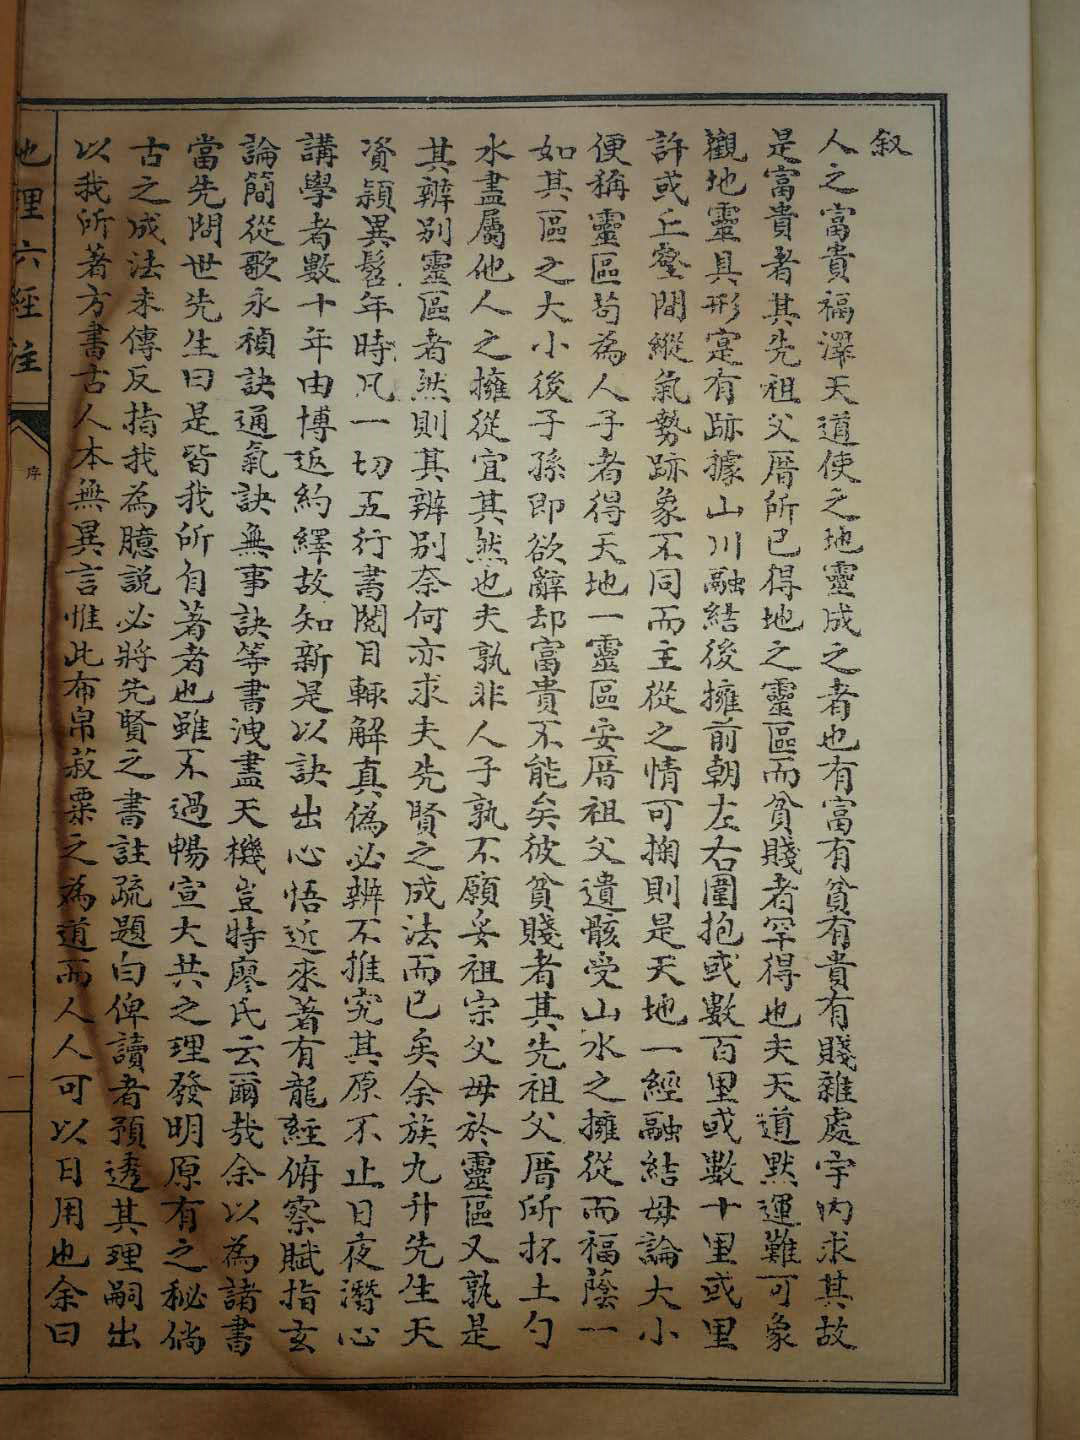 叙
人之富貴福澤天道使之地靈成之者也有富有貧有貴有賤雜處宇內求其故
是富貴者其先祖父厝所已得地之靈區而貧賤者罕得也夫天道默運難可象
觀地靈具形寔有跡據山川融結後擁前朝左右圍抱或數百里或數十里或里
許或丘壑間縱氣勢跡象不同而主從之情可掬則是天地一經融結毋論大小
便稱靈區苟為人子者得天地一靈區安厝祖父遺骸受山水之擁從而福蔭一
如其區之大小後子孫即欲辭却富貴不能矣彼貧賤者其先祖父厝所抔土勺
水盡屬他人之擁從宜其然也夫孰非人子孰不願妥祖宗父母於靈區又孰是
其辨别靈區者然則其辨别奈何亦求夫先賢之成法而已矣余族九升先生天
資穎異髫年時凡一切五行書閱目輒解真偽必辨不推究其原不止日夜潛心
講學者數十年由博返約繹故知新是以訣出心悟近來著有龍經俯察賦指玄
論簡從歌永禎訣通氣訣無事訣等書洩盡天機豈特廖氏云爾哉余以為諸書
當先問世先生曰是皆我所自著者也雖不過暢宣大共之理發明原有之秘倘
古之成法未傳反指我為臆説必將先賢之書註疏題白俾讀者預透其理嗣出
以我所著方書古人本無異言惟此布帛菽粟之為道而人人可以日用也余曰
地理六經注
序
一